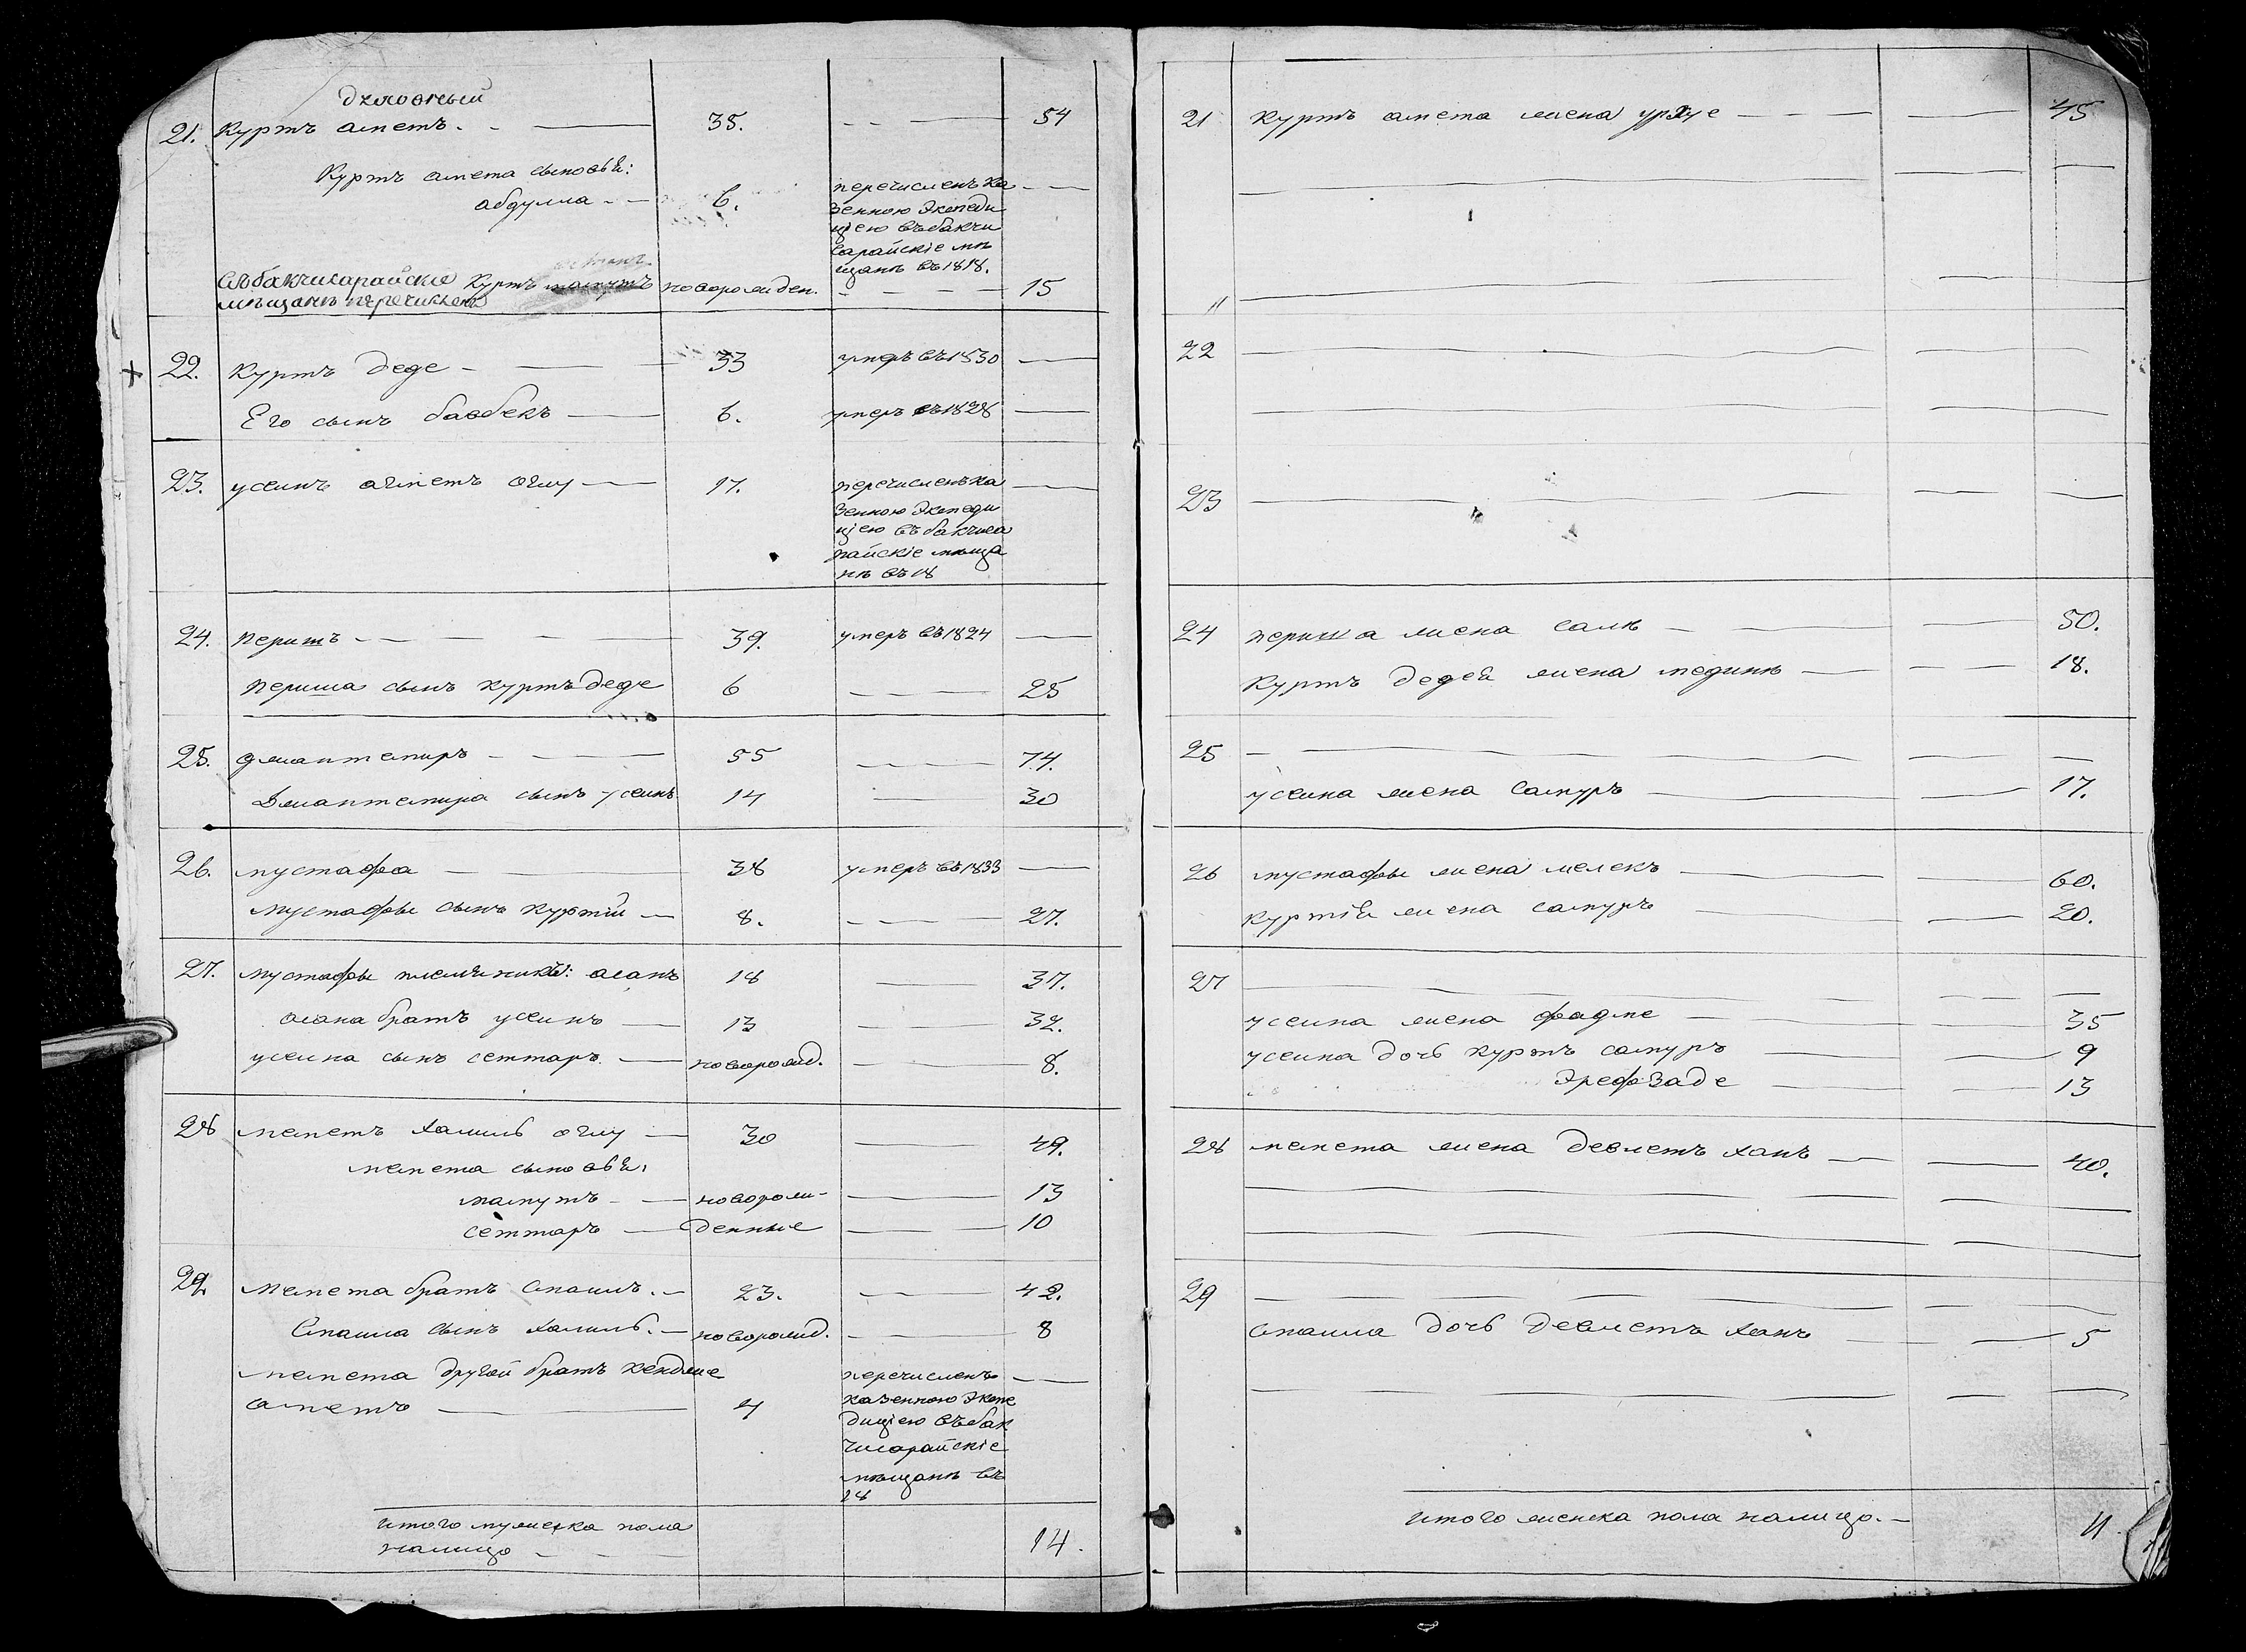 духовный
21. Куртъ аметъ. 35. 54
Куртъ амета сыновья:
абдулла 6. перечисленъ ка
зенною Экспеди
цiею въ бакчи
сарайскiе мѣ
щанѣ въ 1818.
въ бакчисарайскiе Куртъ новорожден. 15
мѣщанѣ перечисленъ
22. Куртъ деде 33 умеръ въ 1830
Его сынъ баобекъ 6. умеръ въ 1828
23. усеинъ аметъ оглу 17. перечисленъ ка
зенною Экспеди
цiею въ бакчиса
райскiе мѣща
нѣ въ 18
24. перишъ 39. умеръ въ 1824
периша сынъ куртъ деде 6 25
25. джантемиръ 55 74.
Джантемира сынъ усеинъ 14 30
26. мустафа 38 умеръ въ 1833
мустафы сынъ куртiй 8. 27.
27. мустафы племяникъ: асанъ 18 37.
асана братъ усеинъ 13 32.
усеина сынъ сеттаръ новорожд. 8.
28 меметъ халиль оглу 30 49.
мемета сыновья:
мамутъ новорож- 13
сеттаръ денные 10
29 мемета братъ смаилъ. 23. 42.
Смаила сынъ халиль. новорожд. 8
мемета другой братъ кендже перечисленъ
аметъ 4 казенною Экспе
дицiею въ бак
чисарайскiе
мѣщанѣ въ
18
итого мужеска пола
налицо 14.
21 Куртъ амета жена 45
"
22
23
24 периша жена сали 50.
Куртъ дедея жена медине 18.
25
усеина жена самуръ 17.
26 мустафы жена мелекъ 60.
куртiя жена самуръ 20.
27
усеина жена фадме 35
усеина дочь куртъ самуръ 9
эрефзаде 13
28 мемета жена девлетъ ханъ 40.
29
смаила дочь девлетъ ханъ 5
итого женска пола налицо. 11.